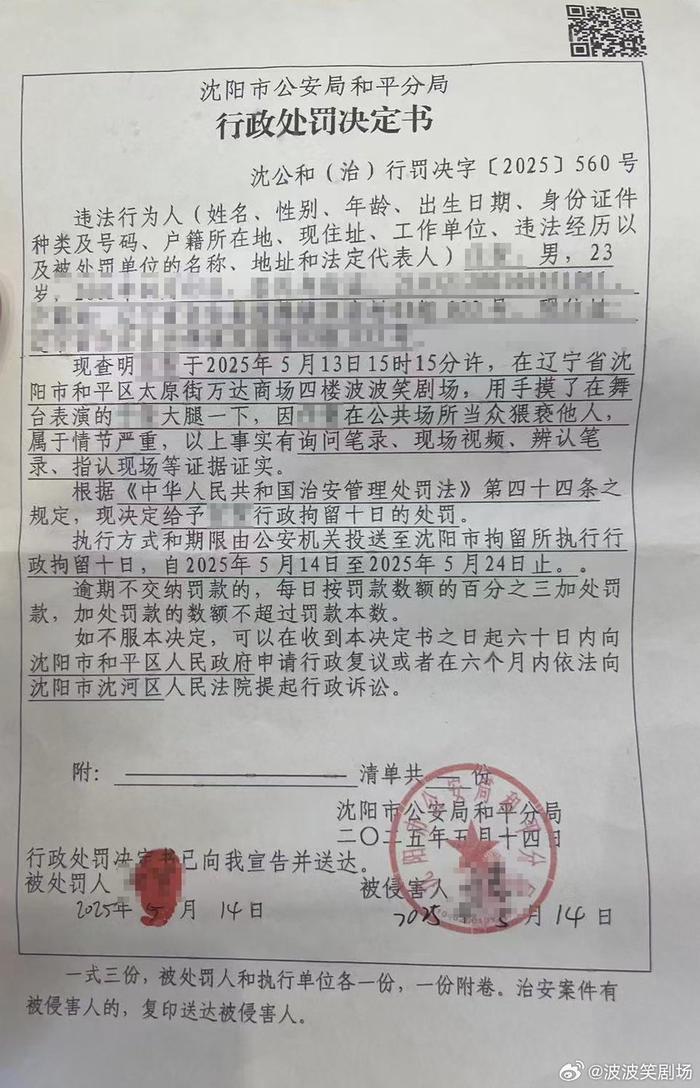 沈阳市公安局和平分局
行政处罚决定书
沈公和（治）行罚决字〔2025〕560号
违法行为人（姓名、性别、年龄、出生日期、身份证件
种类及号码、户籍所在地、现住址、工作单位、违法经历以
及被处罚单位的名称、地址和法定代表人） 男，23
岁，
现查明 于2025年5月13日15时15分许，在辽宁省沈
阳市和平区太原街万达商场四楼波波笑剧场，用手摸了在舞
台表演的 大腿一下，因 在公共场所当众猥亵他人，
属于情节严重，以上事实有询问笔录、现场视频、辨认笔
录、指认现场等证据证实。
根据《中华人民共和国治安管理处罚法》第四十四条之
规定，现决定给予 行政拘留十日的处罚。
执行方式和期限由公安机关投送至沈阳市拘留所执行行
政拘留十日，自2025年5月14日至2025年5月24日止。。
逾期不交纳罚款的，每日按罚款数额的百分之三加处罚
款，加处罚款的数额不超过罚款本数。
如不服本决定，可以在收到本决定书之日起六十日内向
沈阳市和平区人民政府申请行政复议或者在六个月内依法向
沈阳市沈河区人民法院提起行政诉讼。
附： 清单共 份
沈阳市公安局和平分局
二〇二五年五月十四日
行政处罚决定书已向我宣告并送达。
被处罚人 被侵害人
2025年5月14日 2025 5月14日
一式三份，被处罚人和执行单位各一份，一份附卷。治安案件有
被侵害人的，复印送达被侵害人。
@波波笑剧场